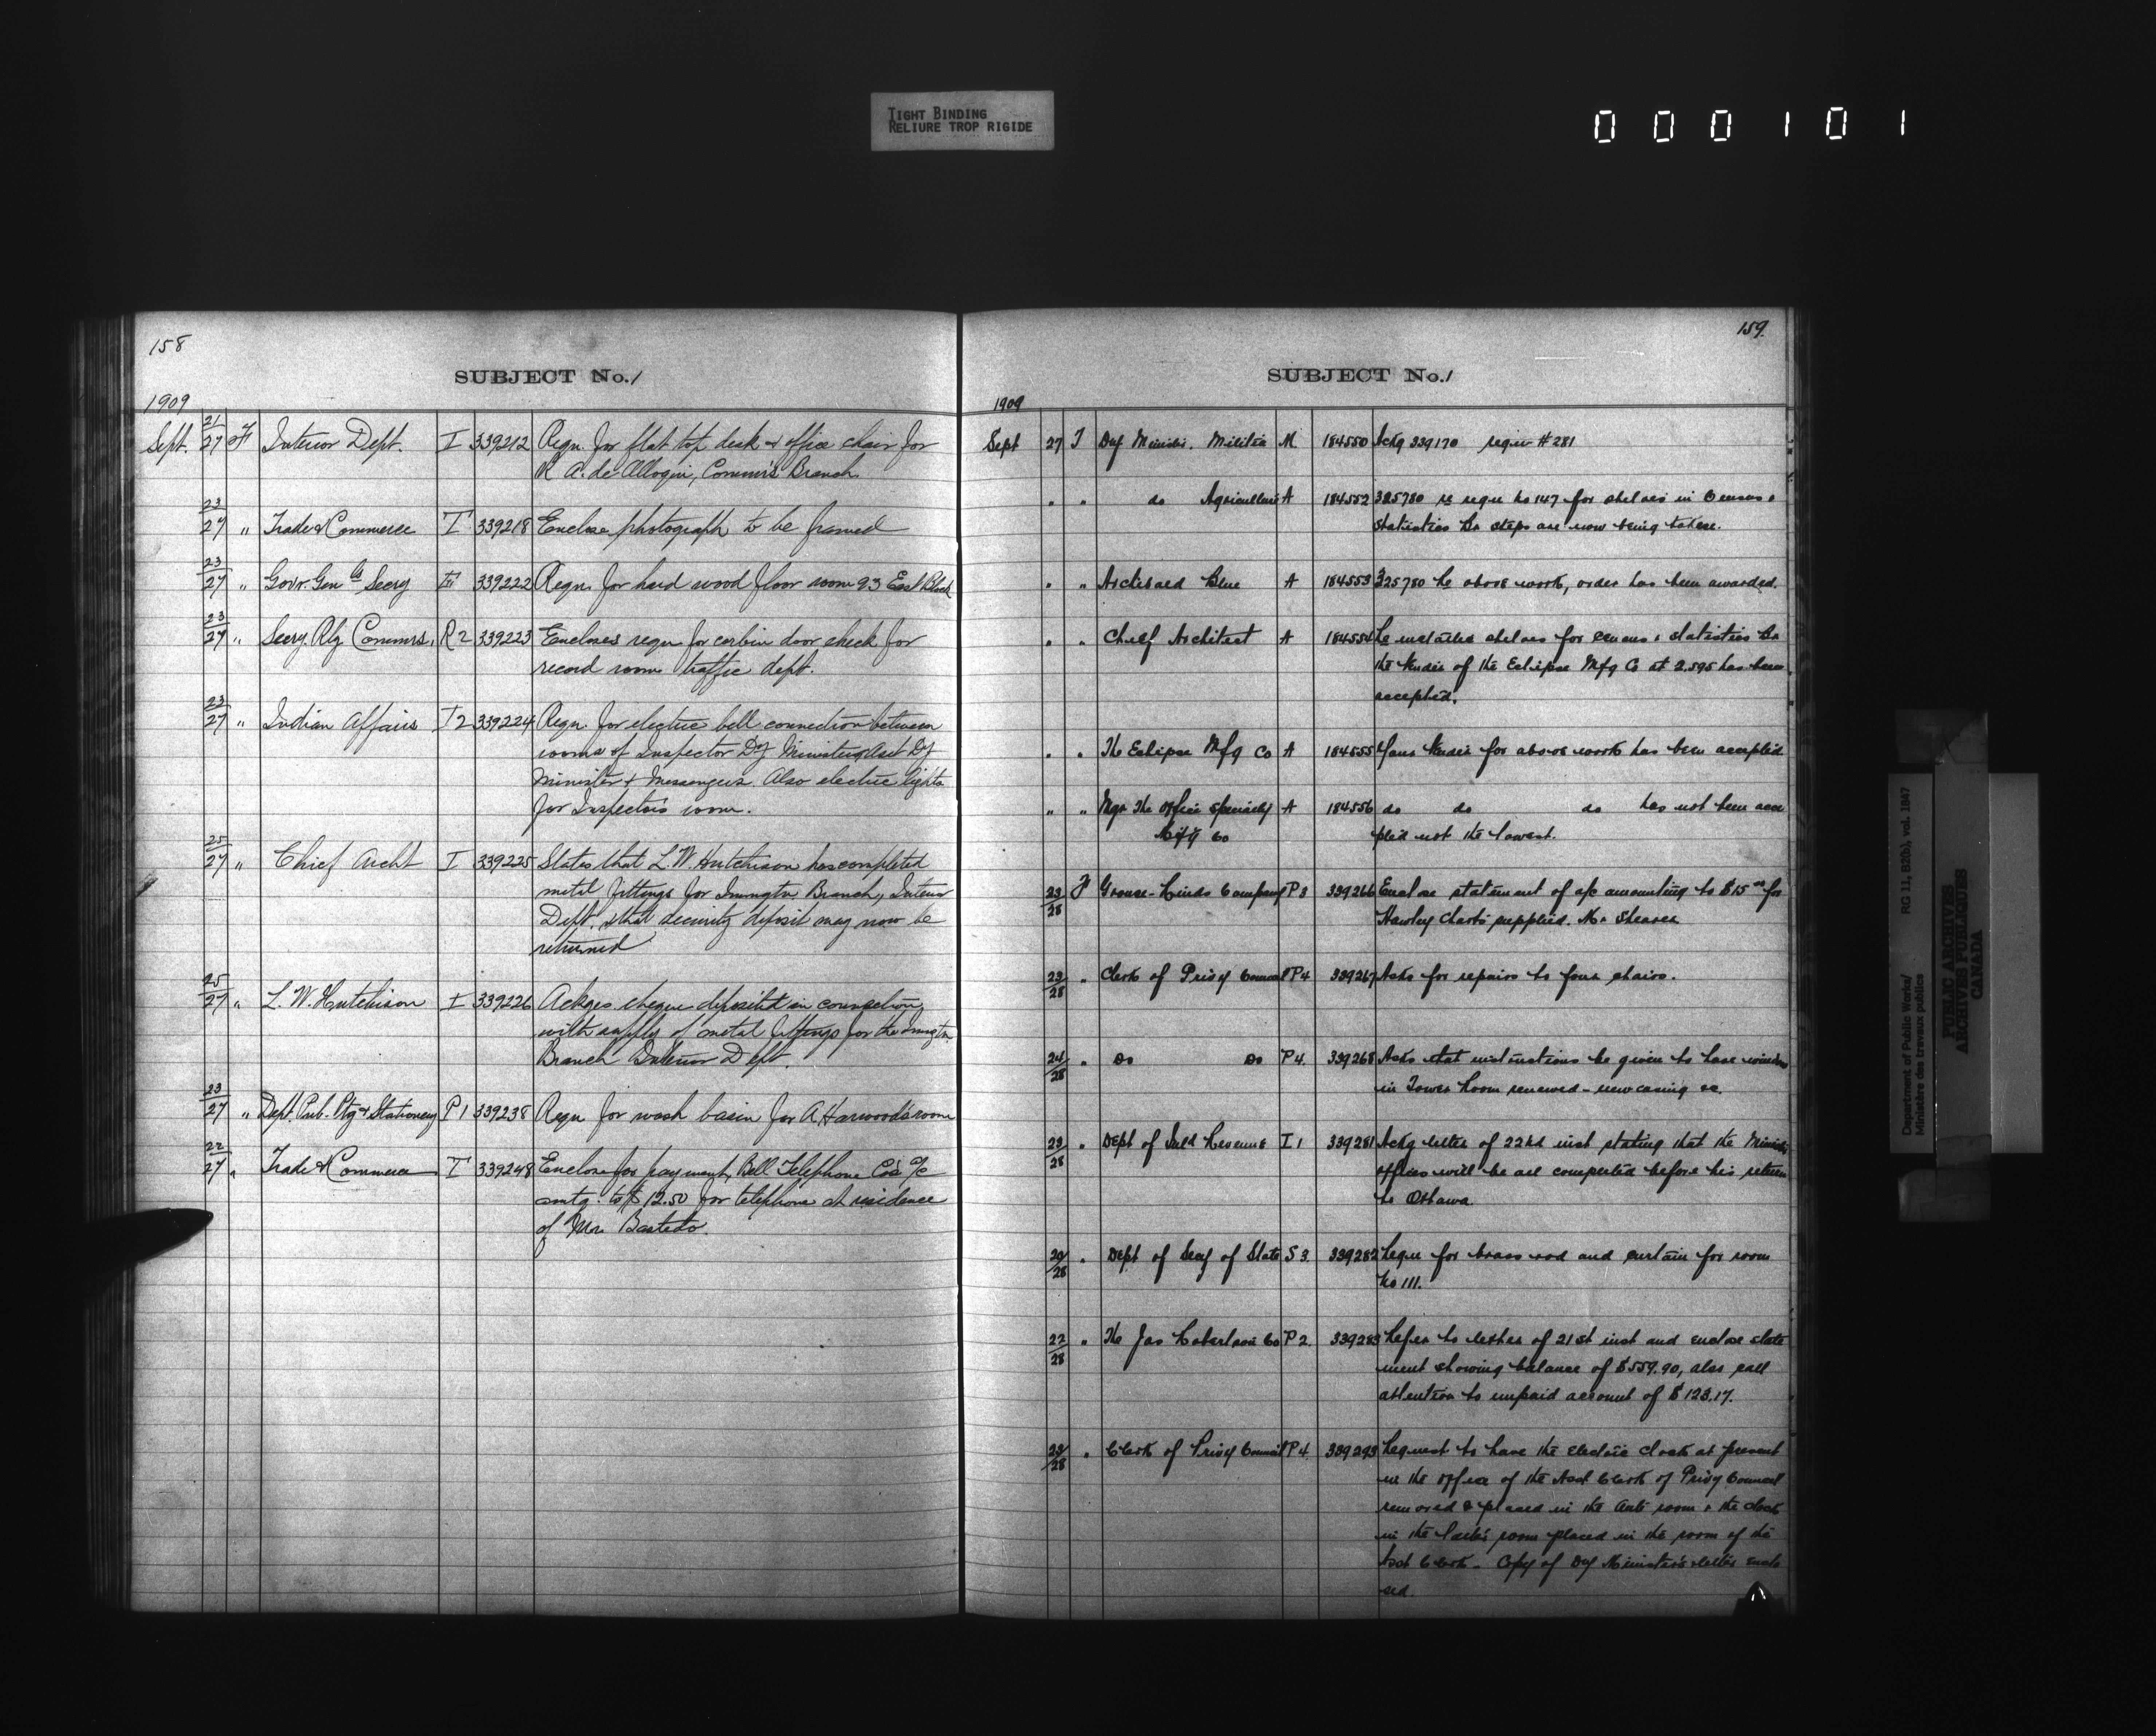 TIGHT BINDING
RELIURE TROP RIGIDE
000101
158
SUBJECT No. 1
1909
Sept. 21/27 F Interior Dept. I 339212 Reqn. for flat top desk & office chair for
R A. de, Comm'rs Branch
23/27 " Trade & Commerce T 339218 Enclose photograph to be framed
23/27 " Govr. Genls Secry 339222 Reqn. for hard wood floor room 93 East Block
23/27 " Secry. Rly Commrs. R2 339223 Encloses reqn for corbin door check for
record room traffic dept.
23/27 " Indian Affairs I2 339224 Reqn. for electric bell connection between
rooms of Inspector Dy Minister, Asst Dy
Minister & Messengers. Also electric lights
for Inspectors room.
25/27 " Chief Archt I 339225 States that L. W. Hutchison has completed
metal fittings for Immgtn. Branch, Interior
Dept. & that security deposit may now be
returned
25/27 " L. W. Hutchison I 339226 Ackges cheque deposited in connection
with supply of metal fittings for the Immgtn.
Branch Interior Dept.
23/27 " Dept. Pub. Ptg & Stationery P1 339238 Reqn for wash basin for A Harwood's room
22/27 " Trade & Commerce T 339248 Enclose for payment, Bell Telephone Co's a/c
amtg. to $12.50 for telephone at residence
of Mr. Bastedo.
159.
SUBJECT No. 1
1909
Sept 27 T Dep Minister. Militia M 184550 Ackg 339170 reqn # 281
" " do Agriculture A 184552 325780 re reqn No 147 for shelves in Census &
Statistics Br steps are now being taken.
" " Archibald Blue A 184553 325780 Re above work, order has been awarded.
" " Chief Architect A 184554 Re metallic shelves for census & statistics Br
the tender of the Eclipse Mfg Co at 2.595 has been
accepted.
" " The Eclipse Mfg Co A 184555 Your tender for above work has been accepted
" " Mgr The Office Specialty A 184556 do do do has not been acce
Mfg Co pted not the lowest.
23/28 F Crouse-Hinds Company P3 339266 Enclose statement of a/c amounting to $15.00 for
Hawley charts supplied. Mr Shearer
23/28 " Clerk of Privy Council P4 339267 Asks for repairs to four chairs.
24/28 " Do Do P4. 339268 Asks that instructions be given to have window
in Tower Room renewed - new casing &c.
23/28 " Dept of Inld Revenue I1 339281 Ackg letter of 22nd inst stating that the Minister
offices will be all completed before his return
to Ottawa
20/28 " Dept of Secy of State S3. 339282 Reqn for brass rod and curtain for room
No 111.
22/28 " The Jas Robertson Co P2. 339283 Refer to letter of 21st inst and enclose state
ment showing balance of $559.90, also call
attention to unpaid account of $123.17.
23/28 " Clerk of Privy Council P4. 339293 Request to have the Electric clock at present
in the office of the Asst Clerk of Privy Council
removed & placed in the Ante room & the clock
in the latter's room placed in the room of the
Asst Clerk - Copy of Dep Minister's letter enclo
sed.
Department of Public Works/ RG 11, B2(b), vol. 1847
Ministère des travaux publics
PUBLIC ARCHIVES
ARCHIVES PUBLIQUES
CANADA